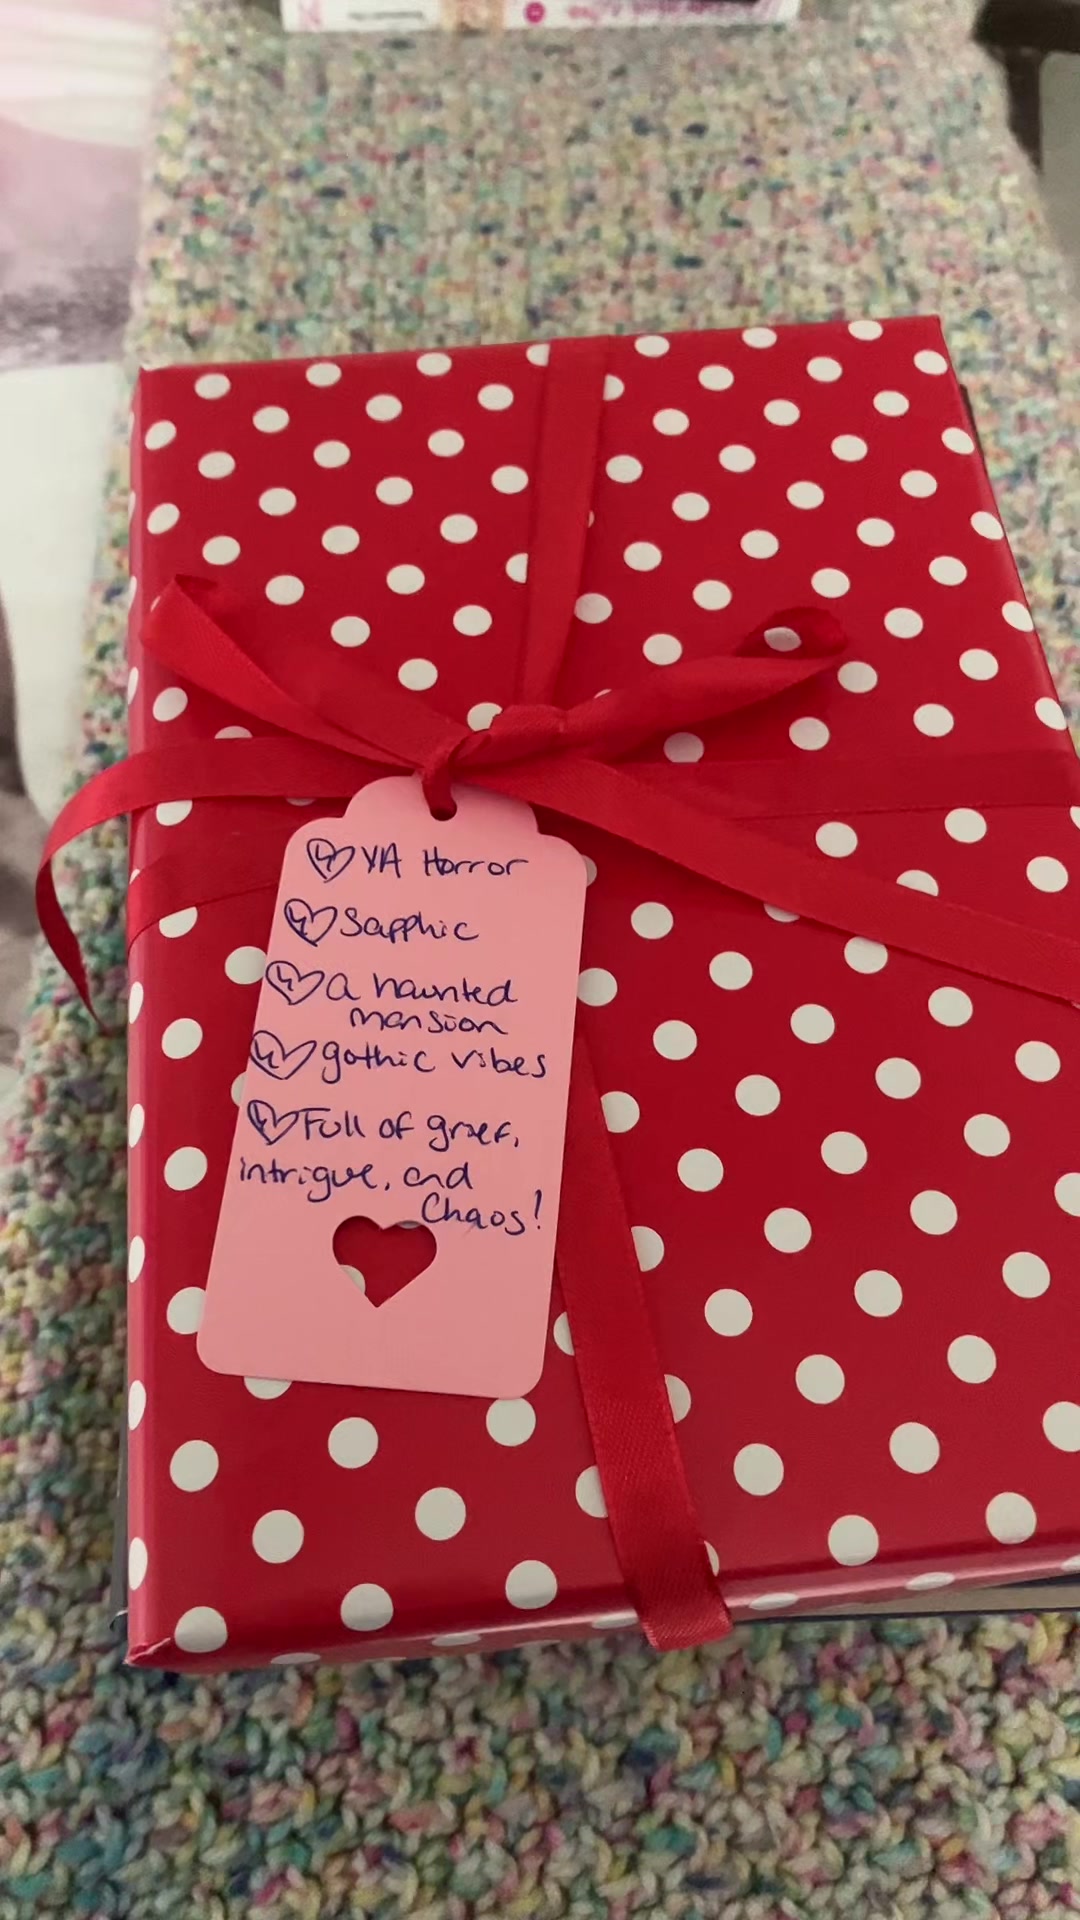 YA Horror
Sapphic
a haunted
mansion
gothic vibes
Full of grief,
intrigue, and
Chaos!